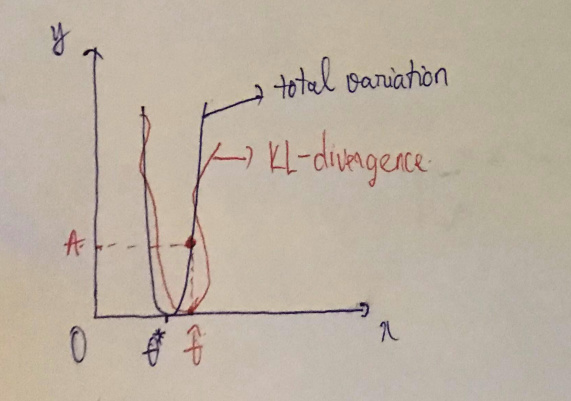 y
total variation
KL-divergence
A
0
θ*
θ̂
x